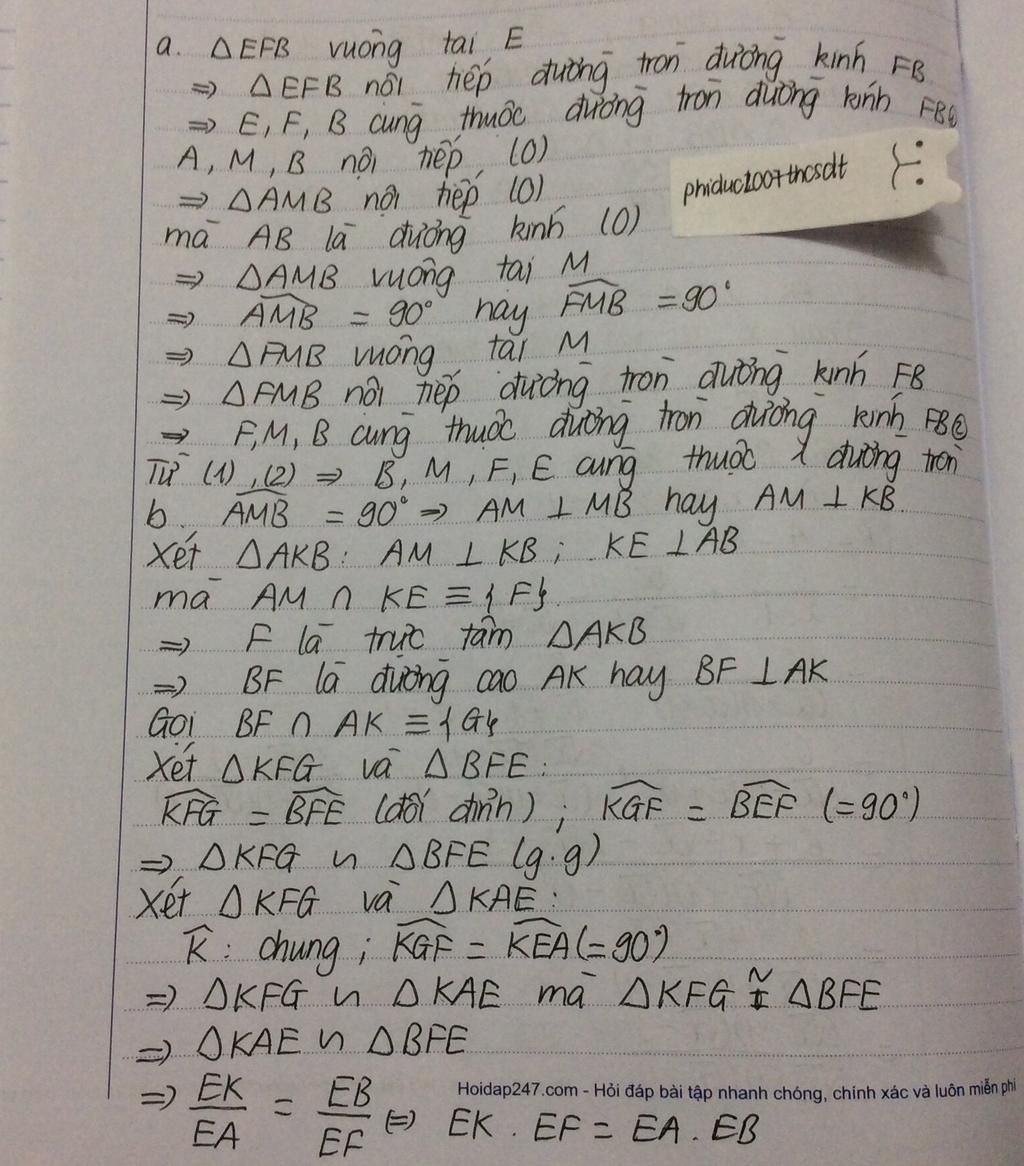 a. ΔEFB vuông tại E
⇒ ΔEFB nội tiếp đường tròn đường kính FB
⇒ E, F, B cùng thuộc đường tròn đường kính FB①
A, M, B nội tiếp (O)
⇒ ΔAMB nội tiếp (O)
mà AB là đường kính (O)
phiduc2007thcsdt
⇒ ΔAMB vuông tại M
⇒ \widehat{AMB} = 90° hay \widehat{FMB} = 90°
⇒ ΔFMB vuông tại M
⇒ ΔFMB nội tiếp đường tròn đường kính FB
⇒ F, M, B cùng thuộc đường tròn đường kính FB②
Từ (1), (2) ⇒ B, M, F, E cùng thuộc 1 đường tròn
b. \widehat{AMB} = 90° ⇒ AM ⊥ MB hay AM ⊥ KB.
Xét ΔAKB: AM ⊥ KB; KE ⊥ AB
mà AM ∩ KE ≡ {F}.
⇒ F là trực tâm ΔAKB
⇒ BF là đường cao AK hay BF ⊥ AK
Gọi BF ∩ AK ≡ {G}
Xét ΔKFG và ΔBFE:
\widehat{KFG} = \widehat{BFE} (đối đỉnh); \widehat{KGF} = \widehat{BEF} (=90°)
⇒ ΔKFG ∽ ΔBFE (g.g)
Xét ΔKFG và ΔKAE:
\widehat{K}: chung; \widehat{KGF} = \widehat{KEA} (=90°)
⇒ ΔKFG ∽ ΔKAE mà ΔKFG ∽ ΔBFE
⇒ ΔKAE ∽ ΔBFE
Hoidap247.com - Hỏi đáp bài tập nhanh chóng, chính xác và luôn miễn phí
⇒ EK/EA = EB/EF ⇔ EK . EF = EA . EB